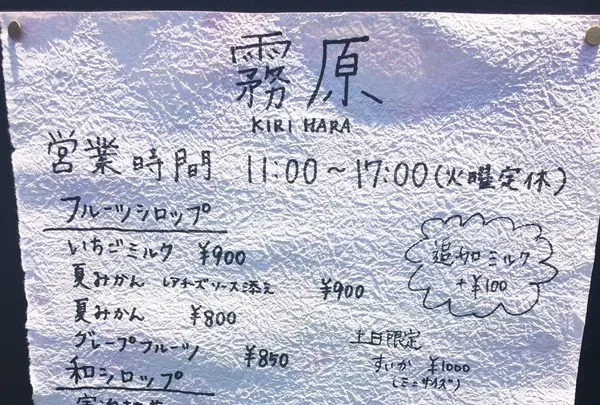 霧原
KIRI HARA
営業時間 11:00〜17:00(火曜定休)
フルーツシロップ
いちごミルク ¥900
夏みかん レアチーズソース添え ¥900
夏みかん ¥800
グレープフルーツ ¥850
和シロップ
追加ミルク
+¥100
土日限定
すいか ¥1000
(ミニサイズ)